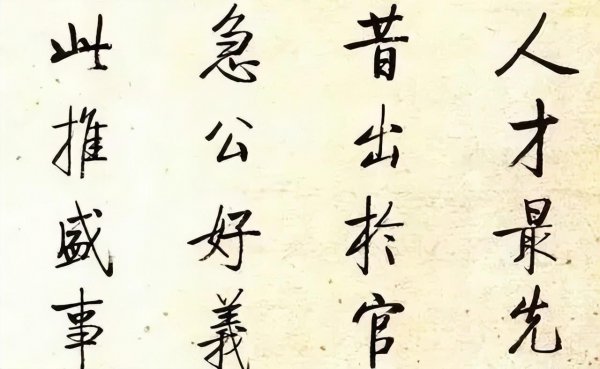 人才最先
昔出於官
急公好義
此推盛事